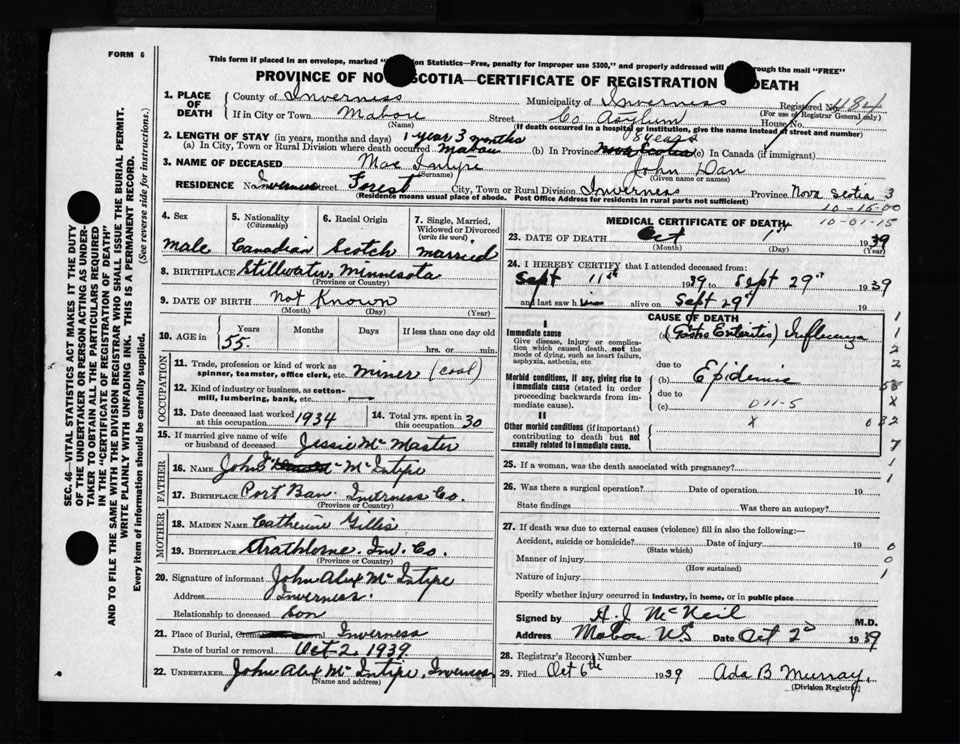 FORM 6
This form if placed in an envelope, marked " on Statistics—Free, penalty for improper use $300," and properly addressed will through the mail "FREE"
PROVINCE OF NO SCOTIA—CERTIFICATE OF REGISTRATION DEATH
1. PLACE OF DEATH County of Inverness Municipality of Inverness Registered No. 484
(For use of Registrar General only)
If in City or Town Mabou Street Co Asylum House No.
(Name) (If death occurred in a hospital or institution, give the name instead of street and number)
2. LENGTH OF STAY (in years, months and days) 1 year 3 months
(a) In City, Town or Rural Division where death occurred Mabou (b) In Province Nova Scotia (c) In Canada (if immigrant)
3. NAME OF DECEASED Mac Intyre John Dan
(Surname) (Given name or names)
RESIDENCE No Inverness Street Forest City, Town or Rural Division Inverness Province Nova Scotia 3
(Residence means usual place of abode. Post Office Address for residents in rural parts not sufficient)
10-01-15
4. Sex 5. Nationality (Citizenship) 6. Racial Origin 7. Single, Married, Widowed or Divorced (write the word)
Male Canadian Scotch Married
8. BIRTHPLACE Stillwater, Minnesota
(Province or Country)
9. DATE OF BIRTH Not Known
(Month) (Day) (Year)
10. AGE in Years Months Days If less than one day
55 hrs. or min.
OCCUPATION
11. Trade, profession or kind of work as spinner, teamster, office clerk, etc. Miner (coal)
12. Kind of industry or business, as cotton-mill, lumbering, bank, etc. —
13. Date deceased last worked at this occupation 1934 14. Total yrs. spent in this occupation 30
15. If married give name of wife or husband of deceased Jessie Mc Master
FATHER
16. NAME John Mc Intyre
17. BIRTHPLACE Port Ban Inverness Co.
(Province or Country)
MOTHER
18. MAIDEN NAME Catherine Gillis
19. BIRTHPLACE Strathlorne, Inv. Co.
(Province or Country)
20. Signature of informant John Alex Mc Intyre
Address Inverness.
Relationship to deceased Son
21. Place of Burial, Inverness
Date of burial or removal Oct 2, 1939
22. UNDERTAKER John Alex Mc Intyre, Inverness
(Name and address)
MEDICAL CERTIFICATE OF DEATH
23. DATE OF DEATH Oct 1st 1939
(Month) (Day) (Year)
24. I HEREBY CERTIFY that I attended deceased from:
Sept 11th 1939 to Sept 29th 1939
and last saw h alive on Sept 29th 19
CAUSE OF DEATH
I
Immediate cause (a) (Gastro Enteritis) Influenza
Give disease, injury or complication which caused death, not the mode of dying, such as heart failure, asphyxia, asthenia, etc.
due to
Morbid conditions, if any, giving rise to immediate cause (stated in order proceeding backwards from immediate cause). (b) Epidemic
due to
(c) D 11-5
II
Other morbid conditions (if important) contributing to death but not causally related to immediate cause. X
25. If a woman, was the death associated with pregnancy?
26. Was there a surgical operation? Date of operation 19
State findings Was there an autopsy?
27. If death was due to external causes (violence) fill in also the following:—
Accident, suicide or homicide? Date of injury 19 0
(State which)
Manner of injury 0
(How sustained)
Nature of injury 1
Specify whether injury occurred in industry, in home, or in public place
Signed by H. J. McNeil M.D.
Address Mabou N S Date Oct 2d 1939
28. Registrar's Record Number
29. Filed Oct 6th 1939 Ada B Murray,
(Division Registrar)
SEC. 46—VITAL STATISTICS ACT MAKES IT THE DUTY
OF THE UNDERTAKER OR PERSON ACTING AS UNDER-
TAKER TO OBTAIN ALL THE PARTICULARS REQUIRED
IN THE "CERTIFICATE OF REGISTRATION OF DEATH"
AND TO FILE THE SAME WITH THE DIVISION REGISTRAR WHO SHALL ISSUE THE BURIAL PERMIT.
WRITE PLAINLY WITH UNFADING INK. THIS IS A PERMANENT RECORD.
Every item of information should be carefully supplied. (See reverse side for instructions.)